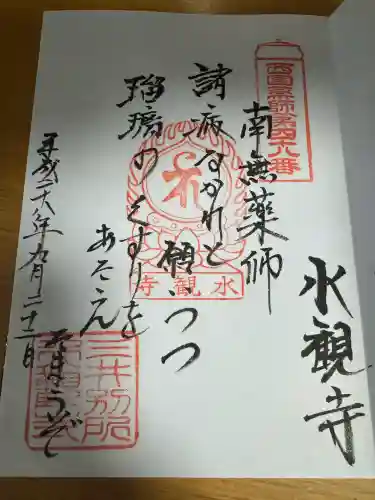 西国薬師第四十八番
水観寺
南無薬師
諸病なかれと
願いつつ
瑠璃のくすりを
あたえ
たまうぞ
平成二八年九月二十二日
水観寺
三井別所